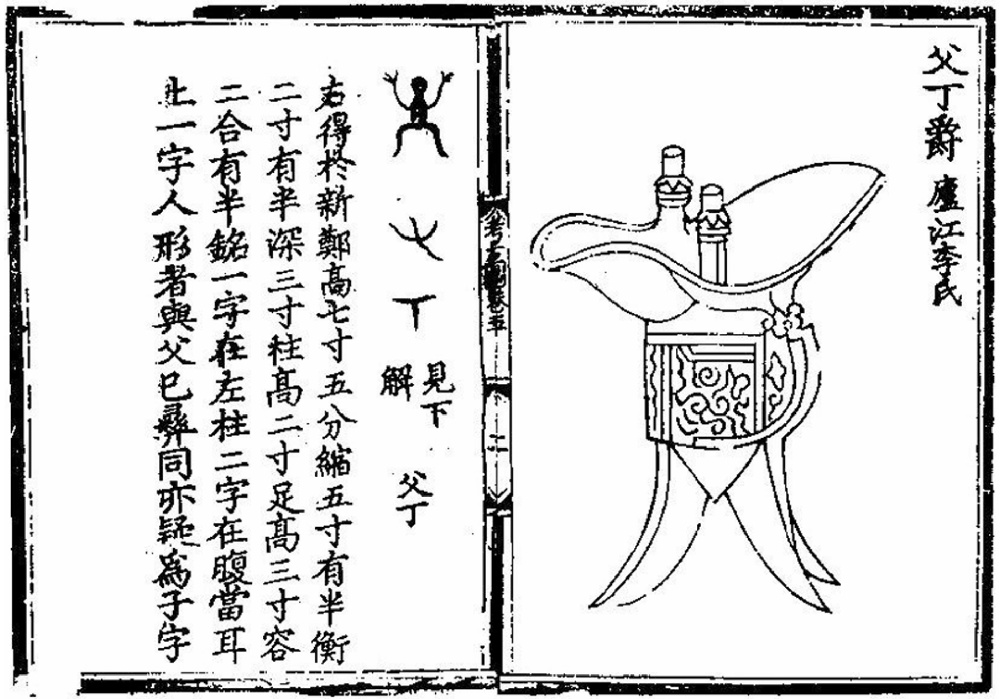 父丁爵 廬江李氏
考古圖卷五
二
見下
解
父丁
右得於新鄭高七寸五分縮五寸有半衡
二寸有半深三寸柱高二寸足高三寸容
二合有半銘一字在左柱二字在腹當耳
上一字人形者與父已彝同亦疑爲子字